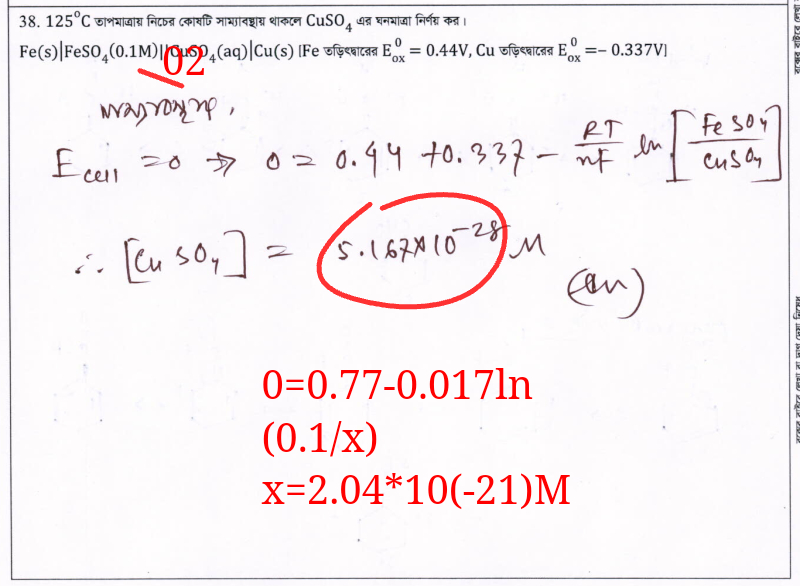 38. 125⁰C তাপমাত্রায় নিচের কোষটি সাম্যাবস্থায় থাকলে CuSO₄ এর ঘনমাত্রা নির্ণয় কর।
Fe(s)|FeSO₄(0.1M)||CuSO₄(aq)|Cu(s) [Fe তড়িৎদ্বারের E⁰ₒₓ = 0.44V, Cu তড়িৎদ্বারের E⁰ₒₓ =− 0.337V]
02
সাম্যাবস্থায়,
E cell = 0 ⇒ 0 = 0.44 + 0.337 − RT/nF ln [FeSO₄/CuSO₄]
∴ [CuSO₄] = 5.167×10⁻²⁸ M
(Ans)
0=0.77-0.017ln
(0.1/x)
x=2.04*10(-21)M